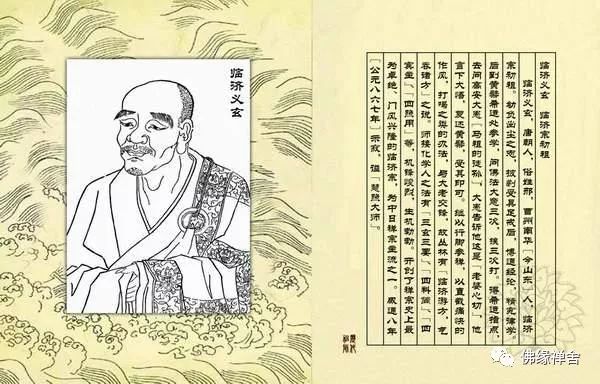 临济义玄
临济义玄 临济宗初祖
临济义玄，唐朝人，俗姓邢，曹州南华［今山东］人，临济
宗初祖。幼负出尘之志，披剃受具足戒后，博通经论，精究律学
后到黄檗希运处参学，问佛法大意三次，挨三次打。得希运指点，
去问高安大愚［马祖的徒孙］大愚告诉他这是「老婆心切」，他
言下大悟，复还黄檗，受其印可。继以行脚参禅，以直截痛快的
作风，打喝之类的办法，与大老交锋，故丛林有「临济游方，气
吞诸方」之说。师接化学人之法有「三玄三要」、「四料简」、「四
宾主」、「四照用」等，机锋峻烈，生机勃勃。开创了禅宗史上最
为卓绝、门风兴隆的临济宗，为中日禅宗主流之一。咸通八年
［公元八六七年］示寂，谥「慧照大师」。
佛缘禅舍